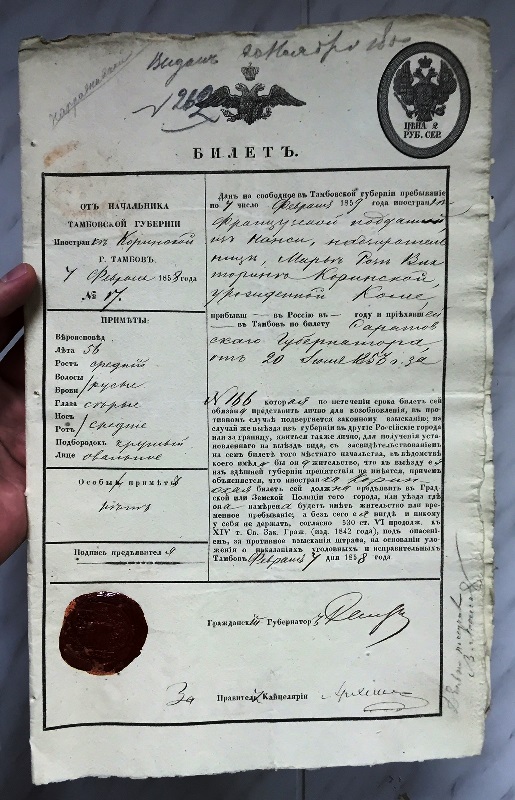 Выданъ
№ 262
ЦѢНА 2
РУБ. СЕР.
БИЛЕТЪ.
ОТЪ НАЧАЛЬНИКА
ТАМБОВСКОЙ ГУБЕРНІИ
Иностранкѣ Коринской
Г. ТАМБОВЪ.
7 Февраля 1858 года
№ 17.
ПРИМѢТЫ:
Вѣроисповѣд.
Лѣта 56
Ростъ средній
Волосы
Брови русые
Глаза сѣрые
Носъ
Ротъ средніе
Подбородокъ круглый
Лице овальное
Особыя примѣты
нѣтъ
Подпись предъявителя
Данъ на свободное въ Тамбовской губерніи пребываніе
по 7 число Февраля 1859 года иностранкѣ
Французской подданной,
Маріи Розѣ Викторинѣ Коринской,
урожденной
прибывш— въ Россію въ — году и пріѣхавшей
— въ Тамбовъ по билету Саратовскаго Губернатора
отъ 20 1857 г. за
№ 166 которая по истеченіи срока билетъ сей
обязана представить лично для возобновленія, въ противномъ
случаѣ подвергнется законному взысканію; на
случай же выѣзда изъ губерніи въ другіе Россійскіе города
или за границу, явиться также лично, для полученія установленнаго
на выѣздъ вида, съ засвидѣтельствованіемъ
на семъ билетѣ того мѣстнаго начальства, въ вѣдомствѣ
коего имѣла бы она жительство, что къ выѣзду ея
изъ здѣшней губерніи препятствія не имѣется, причемъ
объясняется, что иностранка Коринская
билетъ сей должна предъявить въ Градской
или Земской Полиціи того города, или уѣзда гдѣ
она намѣрена будетъ имѣть жительство или временное
пребываніе; а безъ сего ея нигдѣ и никому
у себя не держать, согласно 530 ст. VI продолж. къ
XIV т. Св. Зак. Граж. (изд. 1842 года), подъ опасеніемъ,
за противное взысканія штрафа, на основаніи уложенія
о наказаніяхъ уголовныхъ и исправительныхъ
Тамбовъ Февраля 7 дня 1858 года
Гражданскій Губернаторъ
За Правителя Канцеляріи